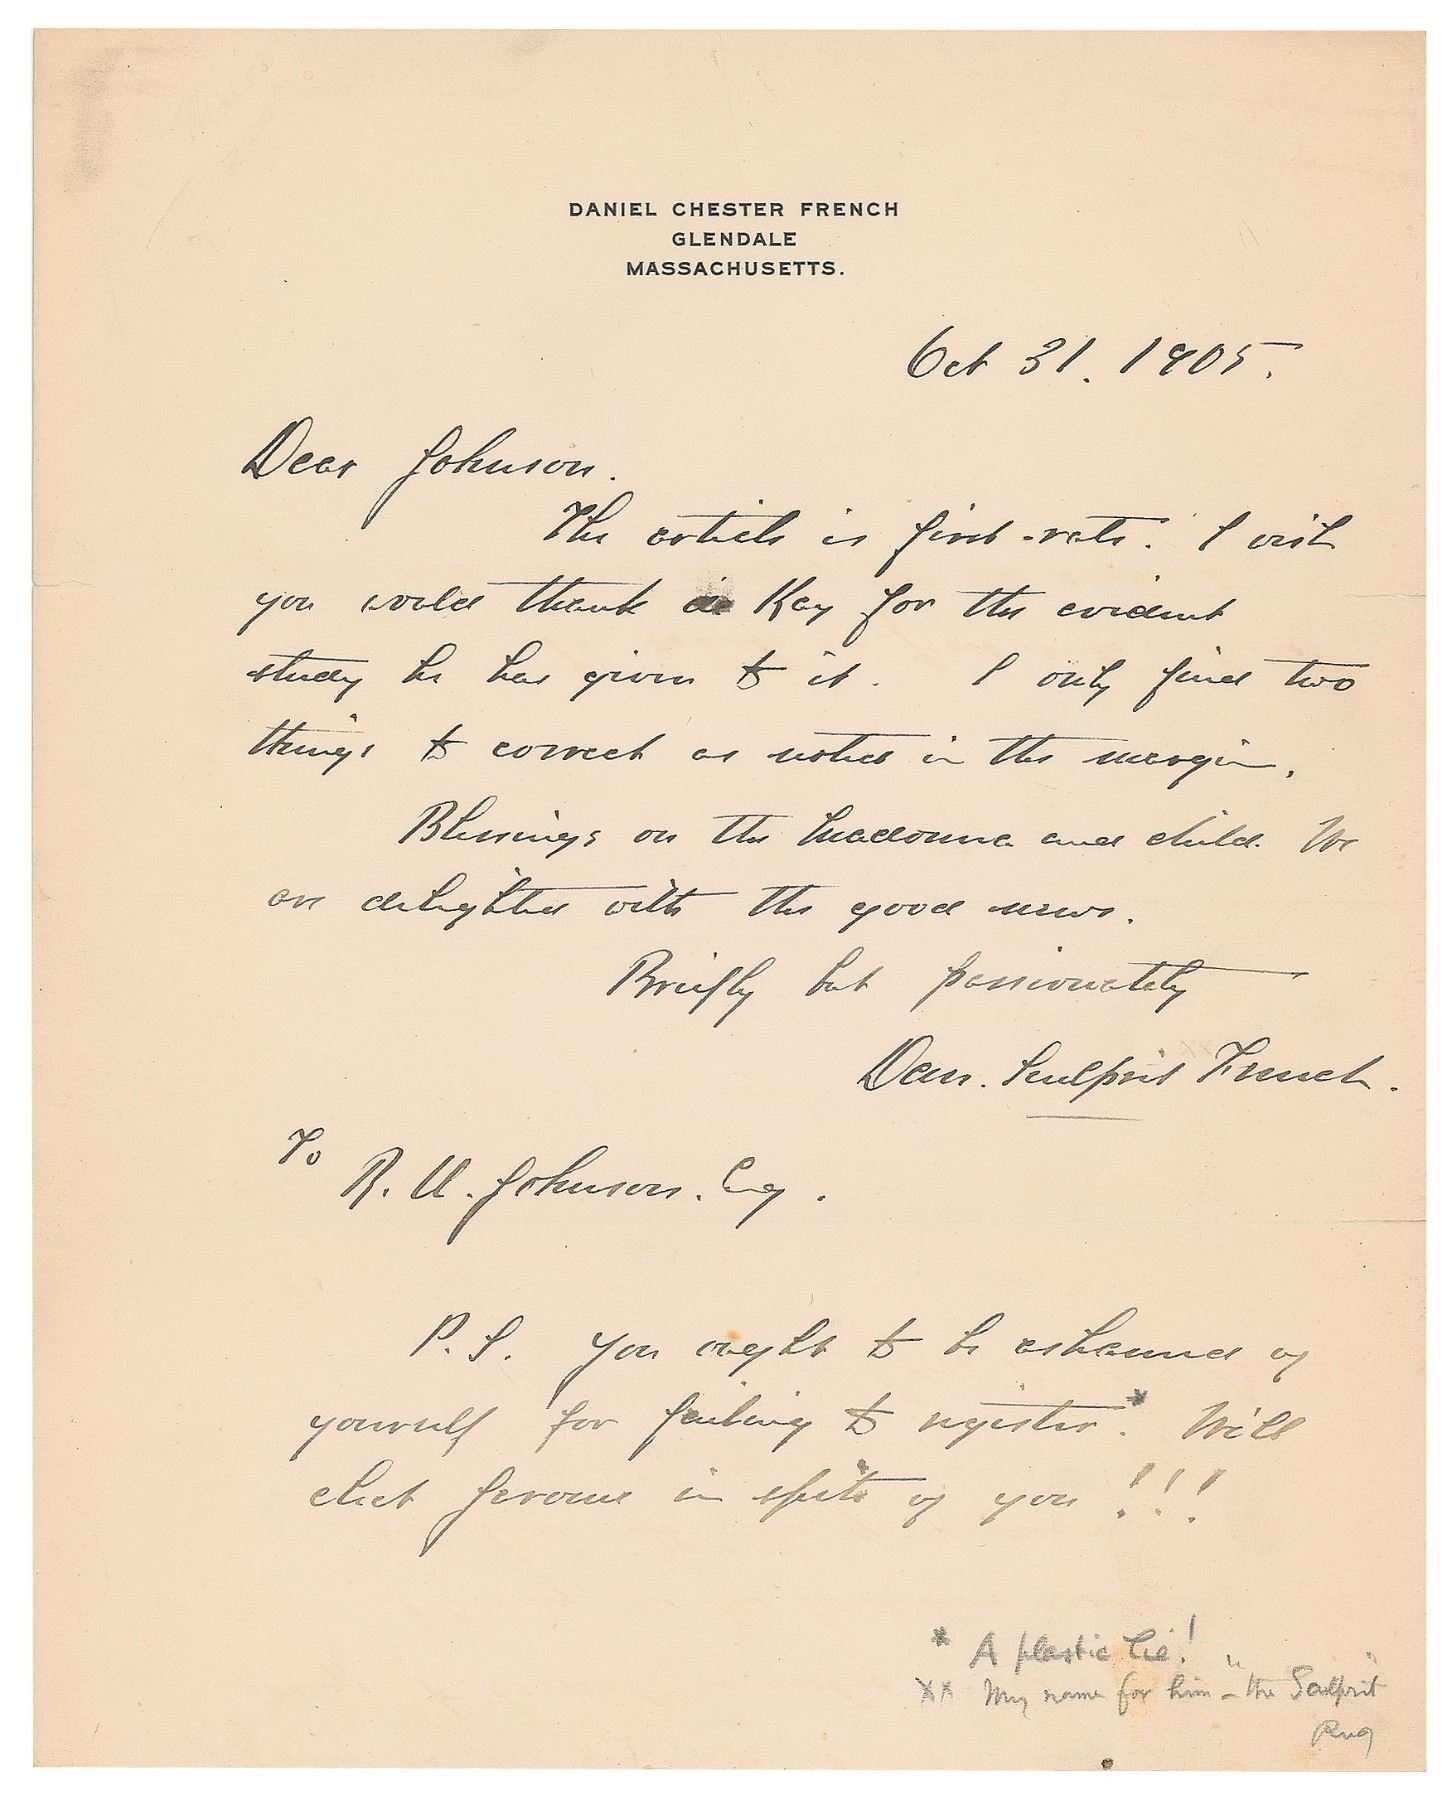 DANIEL CHESTER FRENCH
GLENDALE
MASSACHUSETTS.
Oct 31. 1905.
Dear Johnson.
The article is first-rate. I wish
you would thank Kay for the evident
study he has given to it. I only find two
things to correct as noted in the margin.
Blessings on the Madonna and child. We
are delighted with the good news.
Briefly but passionately
Dan. Sculprit French.
To
R. U. Johnson. Esq.
P. S. You ought to be ashamed of
yourself for failing to register*. Will
elect Jerome in spite of you!!!
* A plastic lie!
xx My name for him - "the Sculprit"
RUJ